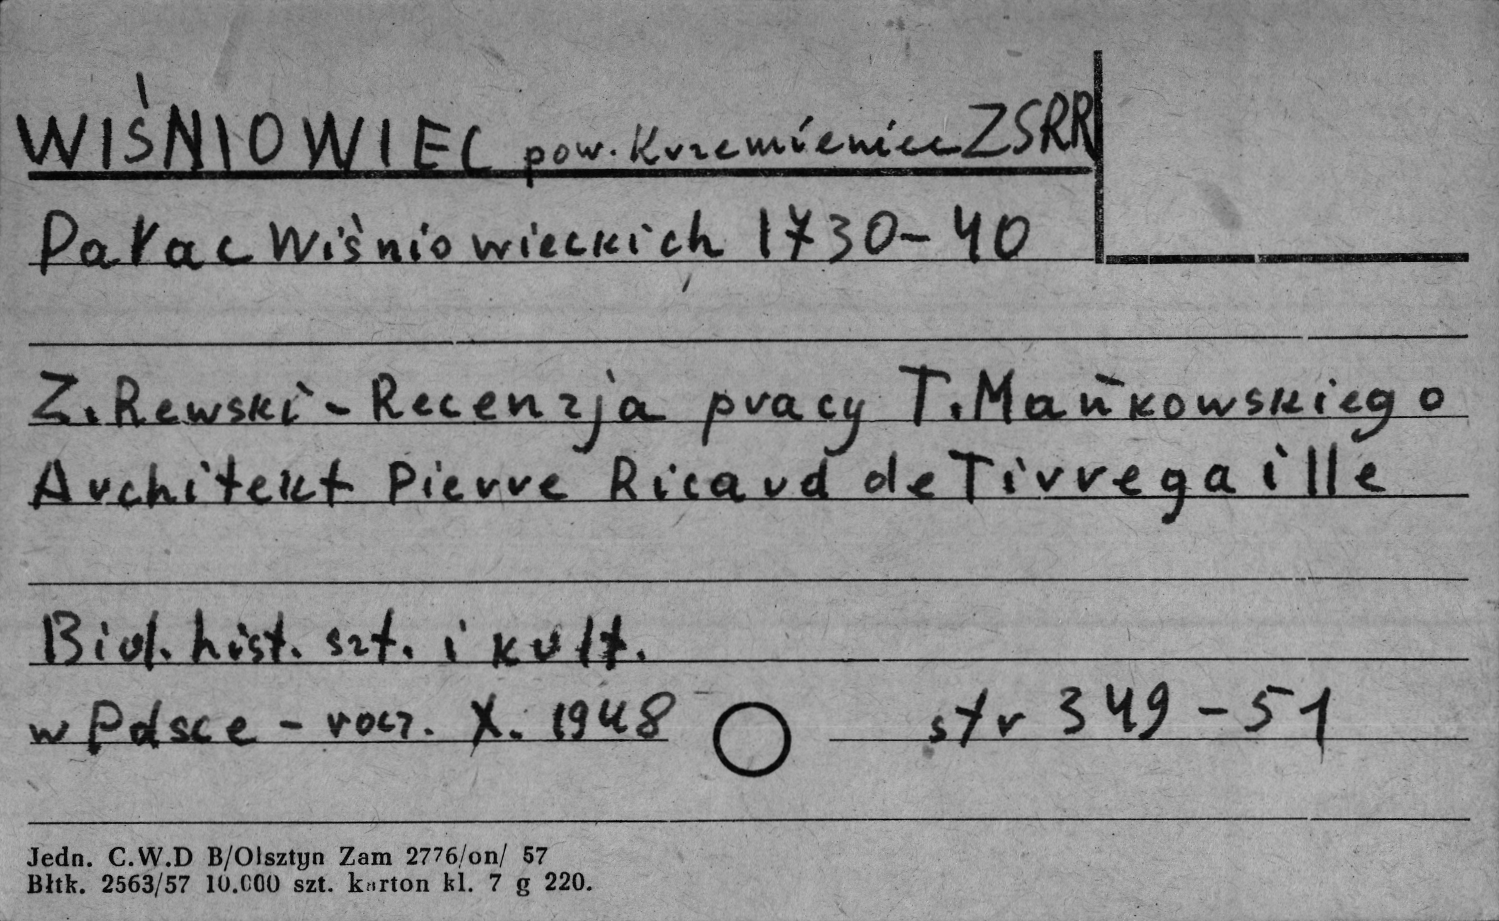 WIŚNIOWIEC pow. Krzemieniec ZSRR
Pałac Wiśniowieckich 1730-40
Z. Rewski - Recenzja pracy T. Mańkowskiego
Architekt Pierre Ricaud de Tirregaille
Biul. hist. szt. i kult.
w Polsce - rocz. X. 1948 str 349-51
Jedn. C.W.D B/Olsztyn Zam 2776/on/ 57
Błtk. 2563/57 10.000 szt. karton kl. 7 g 220.